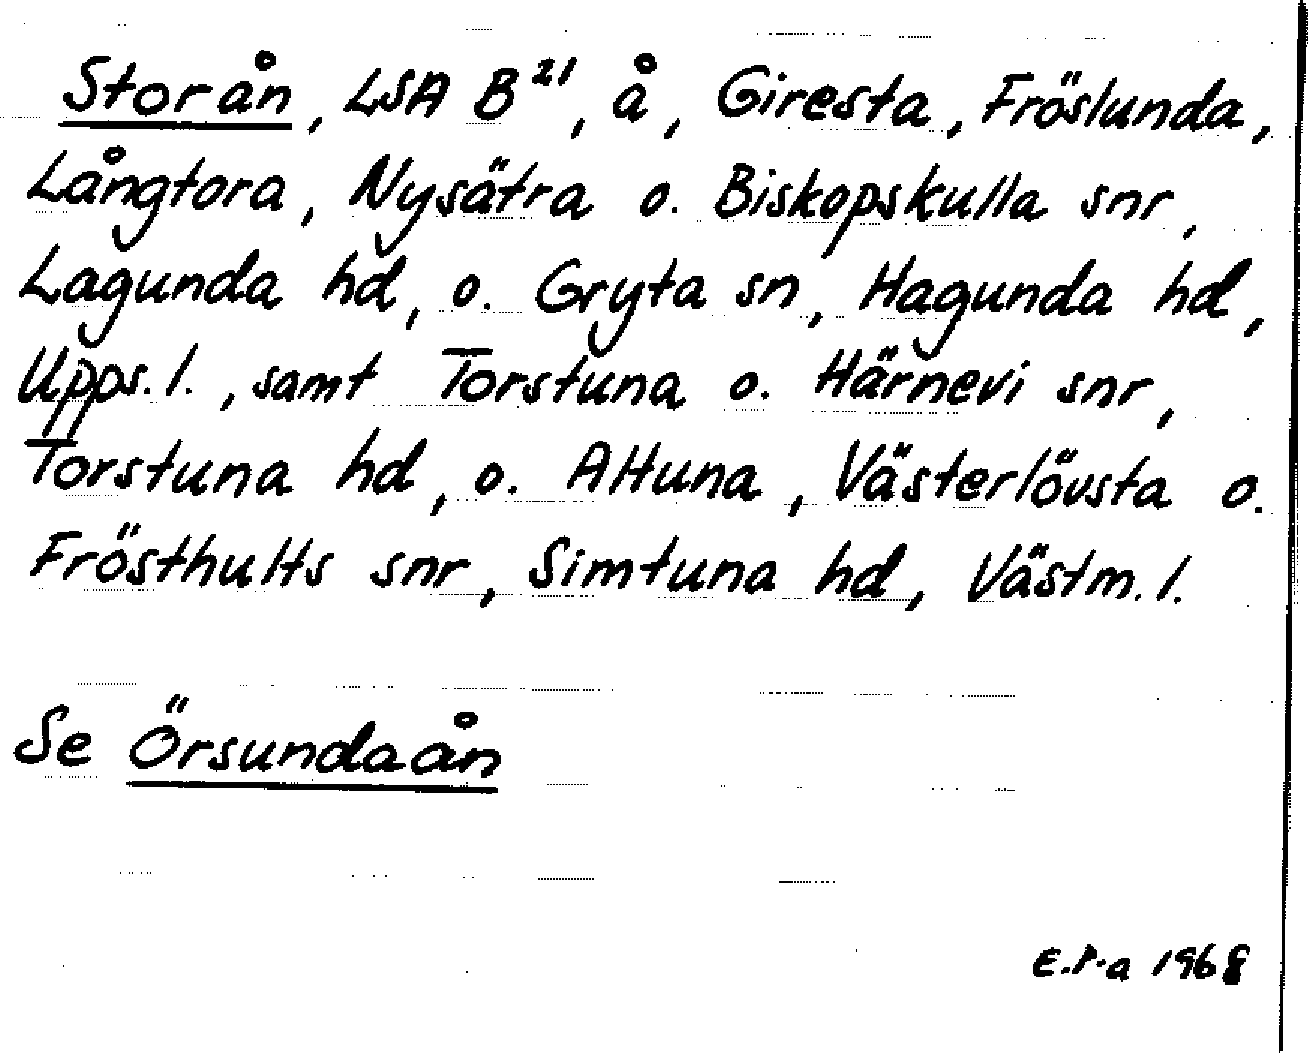 Storån, LSA B²¹, å, Giresta, Fröslunda,
Långtora, Nysätra o. Biskopskulla snr,
Lagunda hd, o. Gryta sn, Hagunda hd,
Upps. l., samt Torstuna o. Härnevi snr,
Torstuna hd, o. Altuna, Västerlövsta o.
Frösthults snr, Simtuna hd, Västm. l.
Se Örsundaån
1968